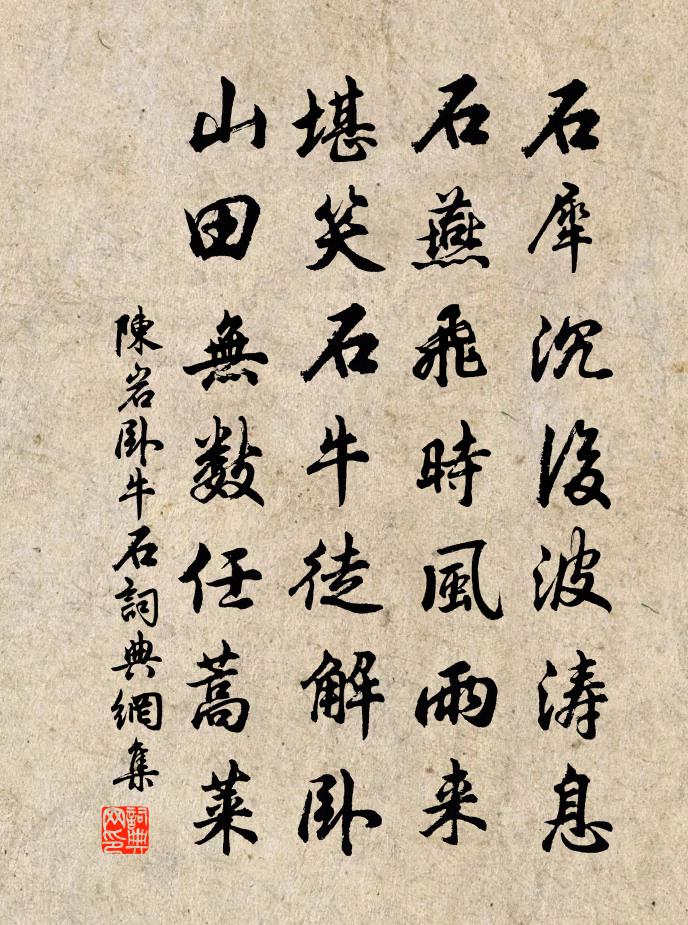 石犀沉後波濤息
石燕飛時風雨來
堪笑石牛徒解臥
山田無數任蒿萊
陳岩臥牛石詞典網集
詞典網印